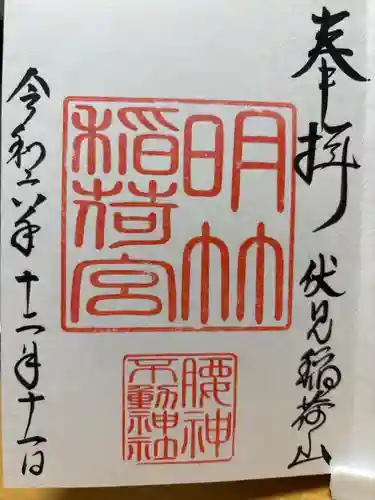 奉拝
伏見稲荷山
明竹
稲荷宮
腰神
不動神社
令和六年十二月十一日